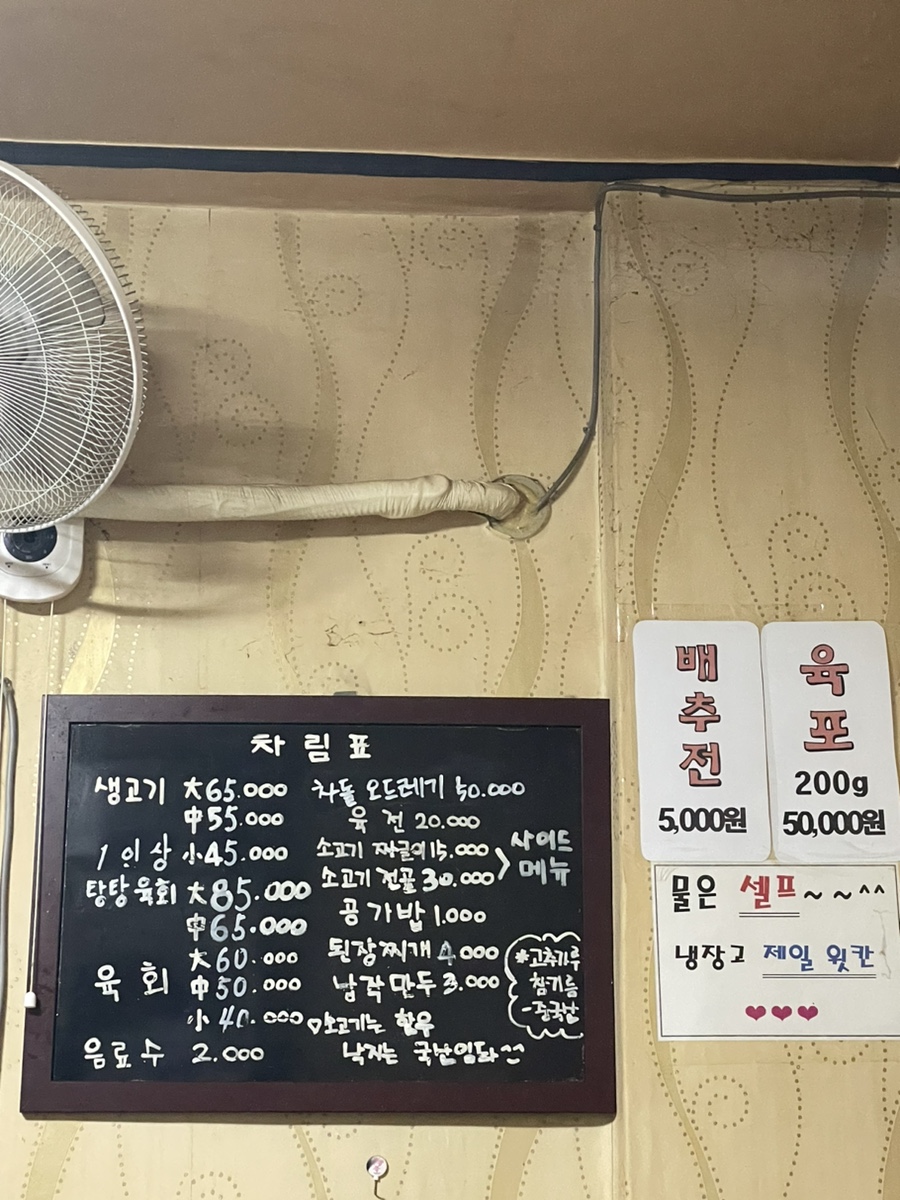 차림표
생고기 大 65.000
中 55.000
1인상 小 45.000
탕탕육회 大 85.000
中 65.000
육회 大 60.000
中 50.000
小 40.000
음료수 2.000
차돌 오드레기 50.000
육전 20.000
소고기 짜글이 15.000
소고기 전골 30.000
사이드
메뉴
공기밥 1.000
된장찌개 4.000
납작만두 3.000
*고추가루
참기름
-중국산
♡소고기는 한우
낙지는 국산입니다
배추전
5,000원
육포
200g
50,000원
물은 셀프~~^^
냉장고 제일 윗칸
♥♥♥